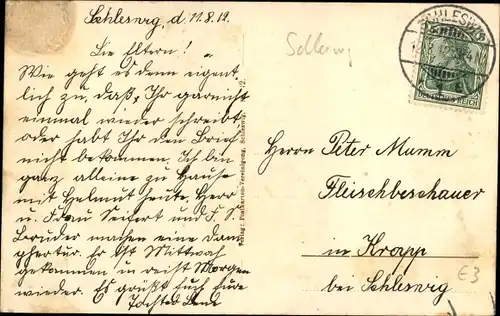 Schleswig, d. 11.8.12.
Lie Eltern!
Wie geht es denn eigent
lich zu, daß Ihr garnicht
einmal wieder schreibt
oder habt Ihr den Brief
nicht bekommen. Ich bin
ganz alleine zu Hause
mit Helmut heute. Herr
u. Frau Seifert und F. S.
Bruder machen eine Dam
pfertur. Er ist Mittwoch
gekommen in reist Morgen
wieder. Es grüßt Euch Eure
Tochter
Schleswig
SCHLESWIG
DEUTSCHES REICH
Verlag: Postkarten-Vereinigung, Schleswig.
Herrn Peter Mumm
Fleischbeschauer
in Kropp
bei Schleswig
E3